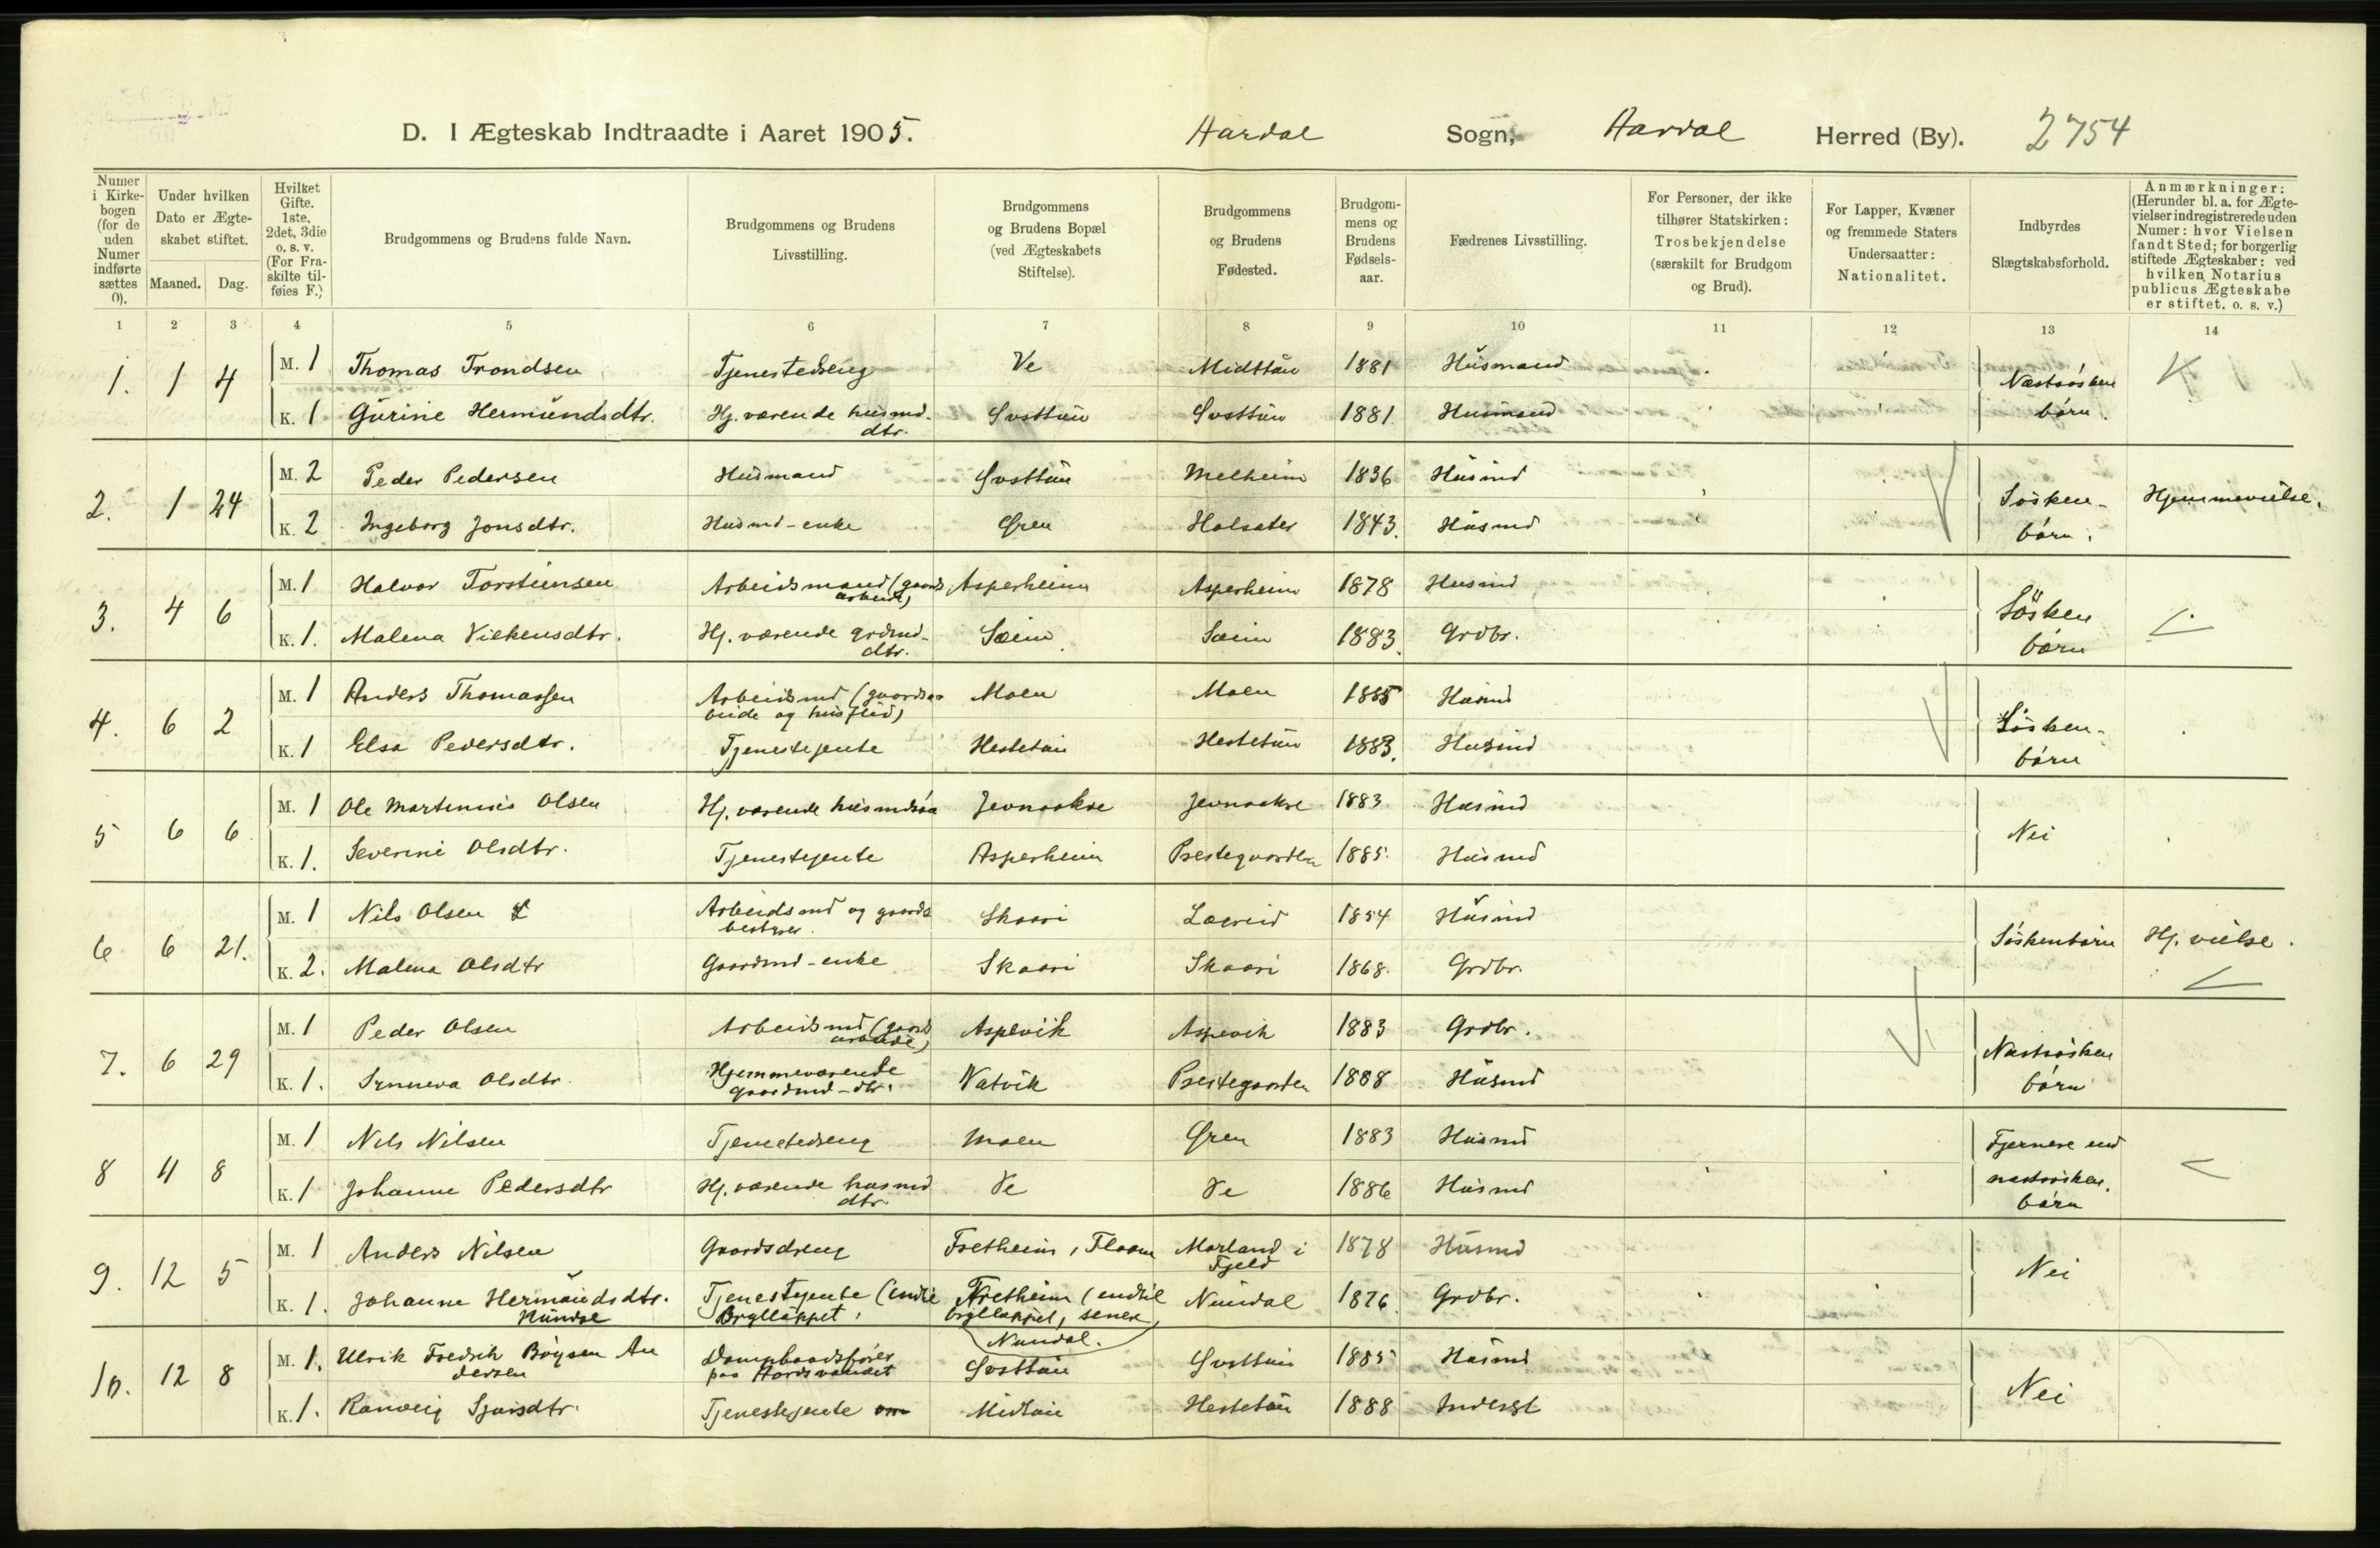 D. I Ægteskab Indtraadte i Aaret 1905. Aardal Sogn, Aardal Herred (By). 2754
Numer i Kirkebogen (for de uden Numer indførte sættes 0). Under hvilken Dato er Ægteskabet stiftet. Maaned. Dag. Hvilket Gifte. 1ste, 2det, 3die o. s. v. (For Fraskilte tilføies F.) Brudgommens og Brudens fulde Navn. Brudgommens og Brudens Livsstilling. Brudgommens og Brudens Bopæl (ved Ægteskabets Stiftelse). Brudgommens og Brudens Fødested. Brudgommens og Brudens Fødselsaar. Fædrenes Livsstilling. For Personer, der ikke tilhører Statskirken: Trosbekjendelse (særskilt for Brudgom og Brud). For Lapper, Kvæner og fremmede Staters Undersaatter: Nationalitet. Indbyrdes Slægtskabsforhold. Anmærkninger: (Herunder bl. a. for Ægtevielser indregistrerede uden Numer: hvor Vielsen fandt Sted; for borgerlig stiftede Ægteskaber: ved hvilken Notarius publicus Ægteskabe er stiftet, o. s. v.)
1 2 3 4 5 6 7 8 9 10 11 12 13 14
1. 1 4 M. 1 Thomas Trondsen Tjenestedreng Ve Midttún 1881 Húsmand Næstsøsken
K. 1 Gúrine Hermúndsdtr. Hj. værende húsmd. Svalltún 1881. Husmand børn.
dtr.
2. 1 24 M. 2 Peder Pedersen Húsmand Melheim 1836 Húsmd Søsken- Hjemmevielse.
K. 2 Ingeborg Jonsdtr. Húsmd-enke Øren Holsæter 1843. Húsmd børn.
3. 4 6 M. 1 Halvor Torsteinsen Arbeidsmand (gaards Asperheim Asperheim 1878 Husmd Søsken
arbeide)
K. 1. Malena Vikensdtr. Hj. værende grdmd- Sæim Sæim 1883. Grdbr. børn
dtr.
4. 6 2 M. 1 Anders Thomassen Arbeidsmd (gaardsar Moen Moen 1885 Húsmd Søsken-
beide og húsflid)
K. 1 Elsa Pedersdtr. Tjenestejente Hestetún Hestetún 1883. Husmd børn
5 6 6 M. 1 Ole Martinús Olsen Hj. værende húsmdsøn Jevnaakre Jevnaakre 1883 Húsmd Nei
K. 1. Severine Olsdtr. Tjenestejente Asperheim Prestegaarden 1885. Húsmd
6 6 21. M. 1 Nils Olsen Arbeidsmd og gaards Skaari Lægreid 1854 Húsmd Søskenbørn Hj. vielse.
bestyrer.
K. 2. Malena Olsdtr Gaardmd-enke Skaari Skaari 1868. Grdbr.
7. 6 29 M. 1 Peder Olsen Arbeidsmd (gaards Aspevik Aspevik 1883 Grdbr. Næstsøsken
arbeide)
K. 1. Synneva Olsdtr. Hjemmeværende Natvik Prestegaarden 1888 Húsmd børn
gaardmd-dtr.
8 4 8 M. 1 Nils Nilsen Tjenestedreng Moen Øren 1883 Húsmd Fjernere end
K. 1 Johanne Pedersdtr Hj. værende husmd Ve Ve 1886 Húsmd næstsøsken.
dtr. børn
9. 12 5 M. 1 Anders Nilsen Gaardsdreng Fretheim, Flaam Morland i 1878 Húsmd Nei
Fjeld
K. 1. Johanne Hermúndsdtr. Tjenestejente (indtil Fretheim (indtil Núndal 1876 Grdbr.
Húndal Brylluppet. brylluppet, senere
Núndal.
10. 12 8 M. 1. Ulrik Fredrik Bøysen An Dampbaadsfører 1885 Húsmd Nei
dersen paa Aardsvandet
K. 1. Ranveig Sjúrsdtr. Tjenestejente Midtún Hestetún 1888 Inderst